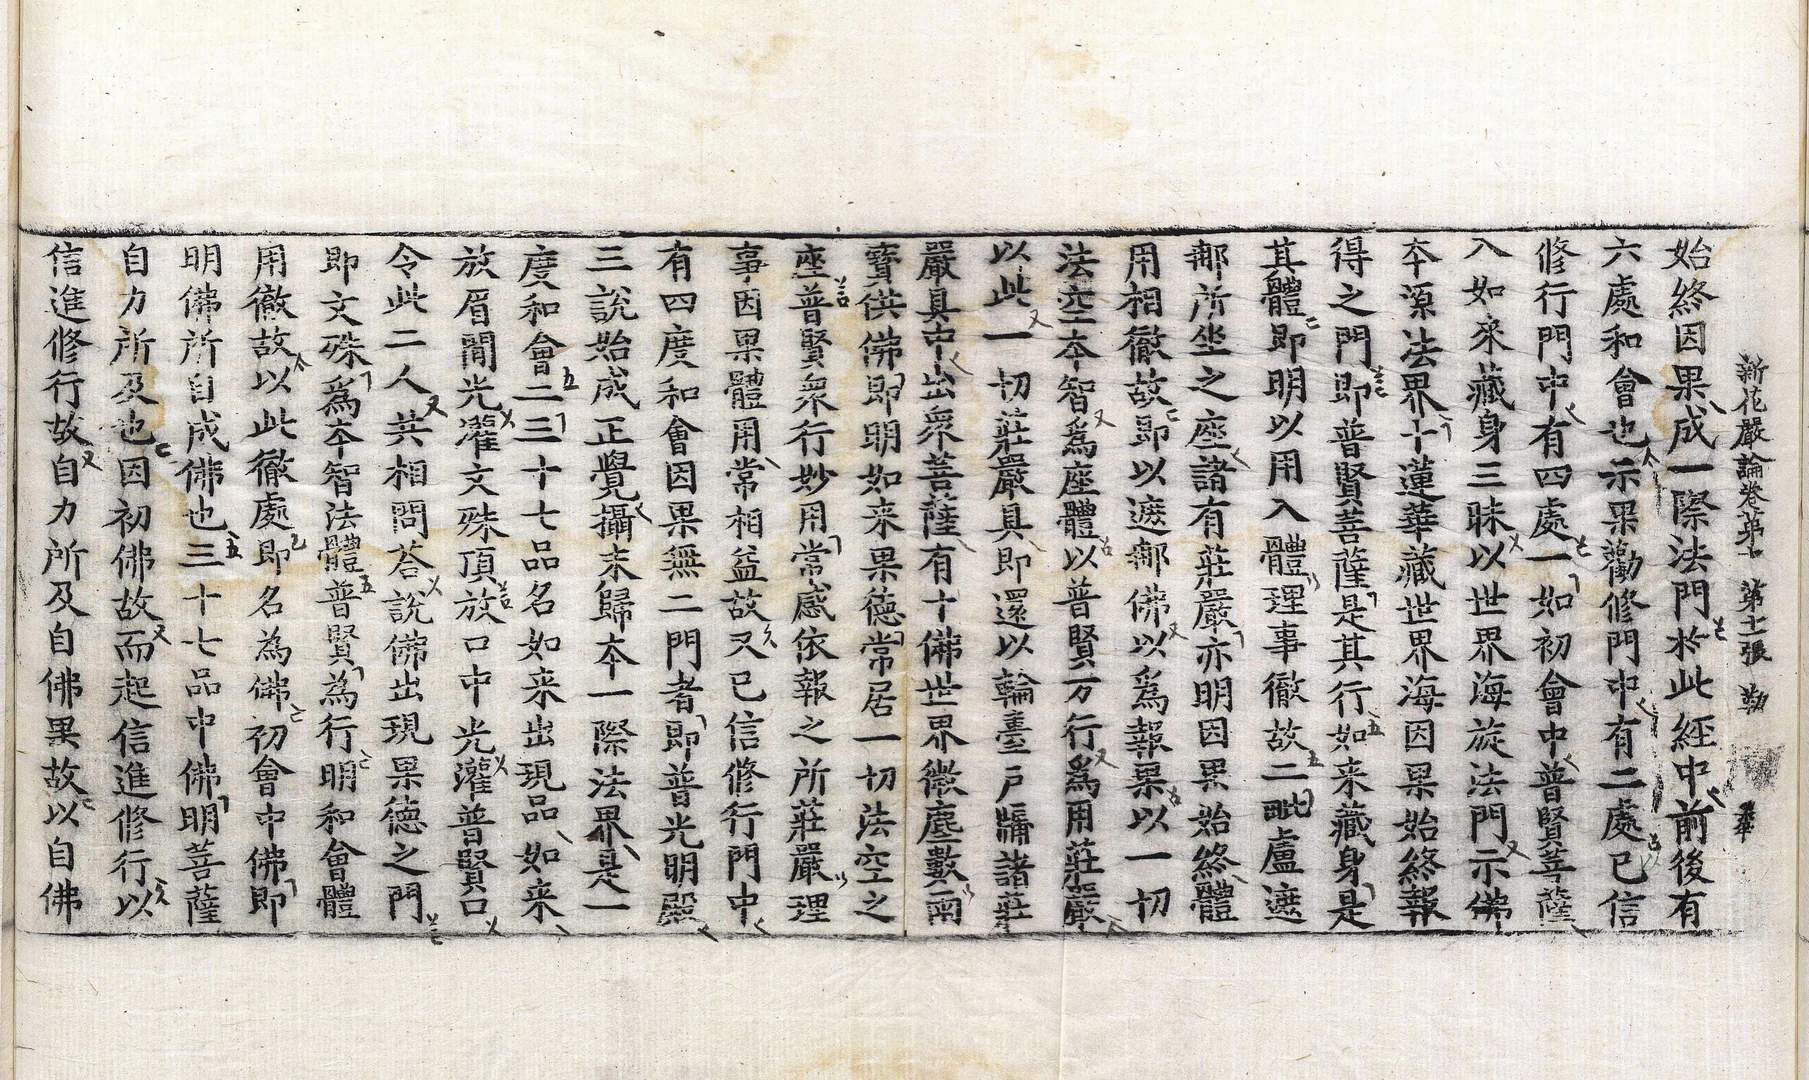 新花嚴論卷第十　第十一張　勒
始終因果成一際法門於此經中前後有
六處和會也示果勸修門中有二處已信
修行門中有四處一如初會中普賢菩薩
入如來藏身三昧以世界海旋法門示佛
本源法界十蓮華藏世界海因果始終報
得之門即普賢菩薩是其行如来藏身是
其體即明以用入體理事徹故二毗盧遮
那所坐之座諸有莊嚴亦明因果始終體
用相徹故即以遮那佛以爲報果以一切
法空本智爲座體以普賢万行爲用莊嚴
以此一切莊嚴具即還以輪臺戶牖諸莊
嚴具中出衆菩薩有十佛世界微塵數雨
寶供佛即明如来果德常居一切法空之
座普賢衆行妙用常感依報之所莊嚴理
事因果體用常相益故又已信修行門中
有四度和會因果無二門者即普光明殿
三說始成正覺攝末歸本一際法界是一
度和會二三十七品名如来出現品如来
放眉閒光灌文殊頂放口中光灌普賢口
令此二人共相問荅說佛出現果德之門
即文殊爲本智法體普賢為行明和會體
用徹故以此徹處即名為佛初會中佛即
明佛所自成佛也三十七品中佛明菩薩
自力所及也因初佛故而起信進修行以
信進修行故自力所及自佛果故以自佛